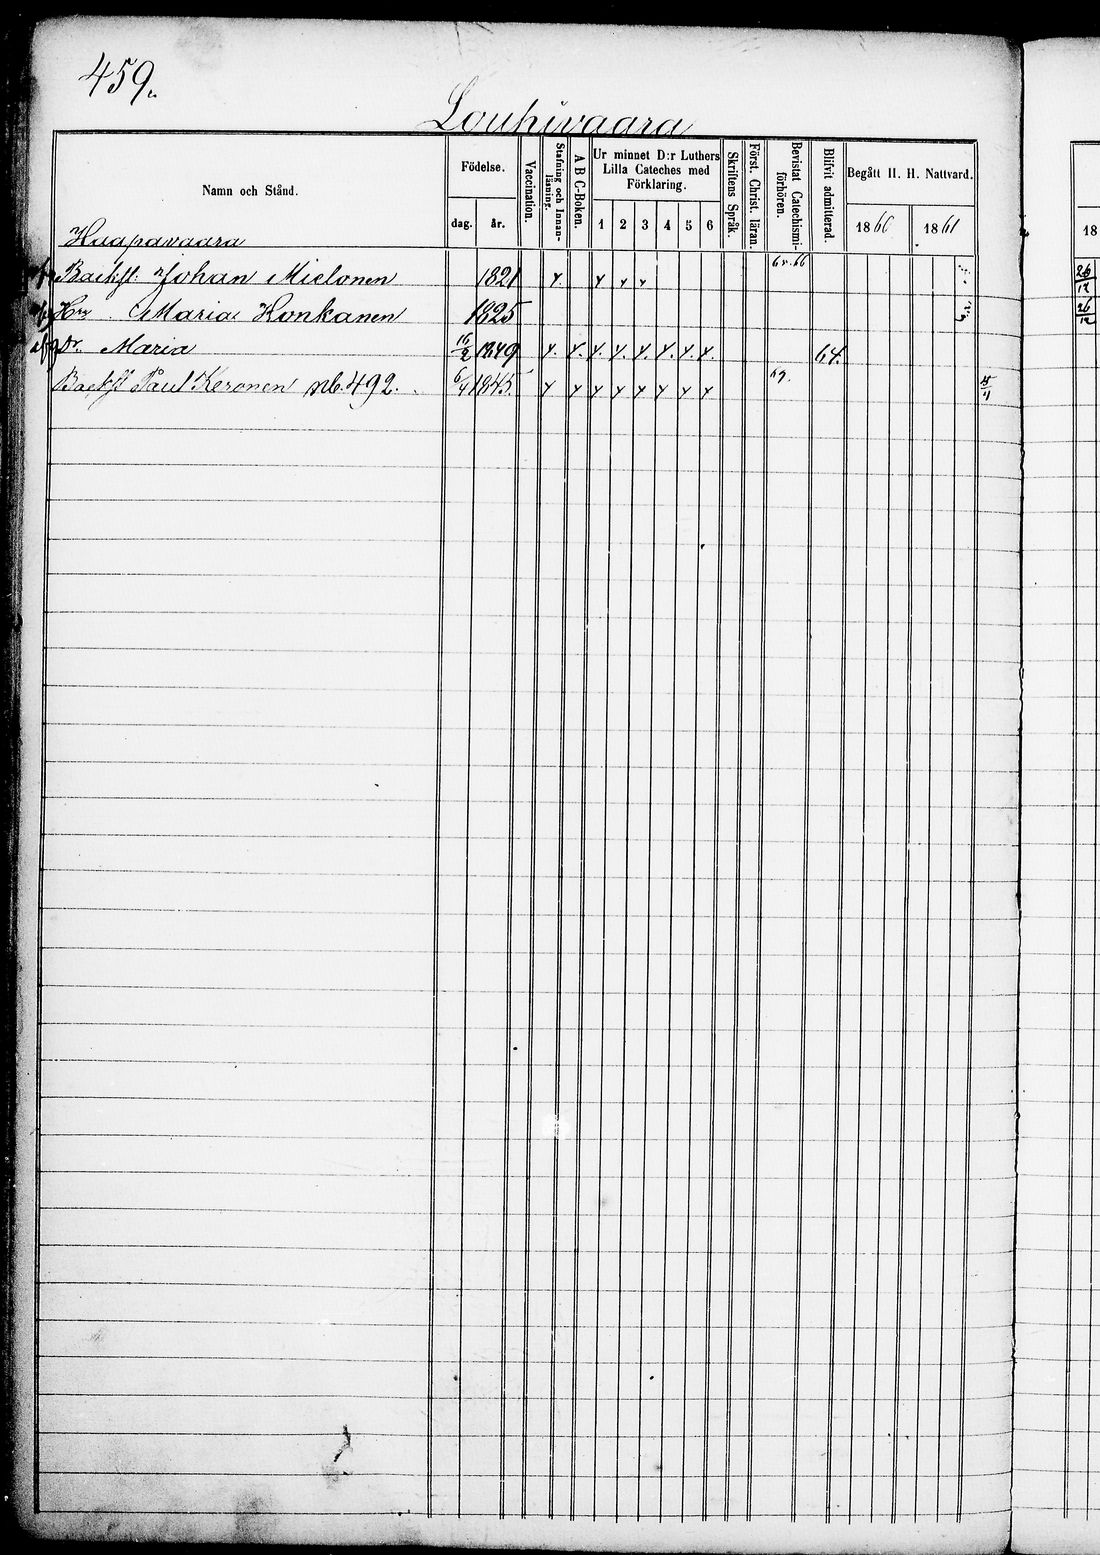 459.
Louhivaara
Namn och Stånd.
Födelse.
dag.
år.
Vaccination.
Stafning och Innanläsning.
A B C-Boken.
Ur minnet D:r Luthers Lilla Cateches med Förklaring.
1 2 3 4 5 6
Skriftens Språk.
Först. Christ. läran.
Bevistat Catechismiförhören.
Blifvit admitterad.
Begått H. H. Nattvard.
1860 1861
18
Haapavaara
Backst: Johan Mielonen 1821 y. y y y 65.66 26/12
Hru Maria Konkanen 1825 26/12
Dr. Maria 16/2 1849 y. y. y. y. y. y. y. y. 64.
Backst Paul Keronen nb. 492. 6/4 1845. y y y y y y y y 69.